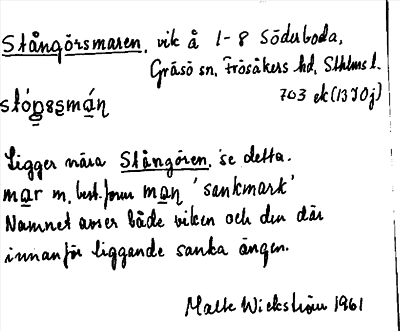 Stångörsmaren, vik å 1-8 Söderboda,
Gräsö sn, Frösåkers hd, Sthlms l.
703 ek (13 I 0 j)
Ligger nära Stångören, se detta.
mar m, best. form man 'sankmark'
Namnet avser både viken och den där
innanför liggande sanka ängen.
Malte Wickström 1961